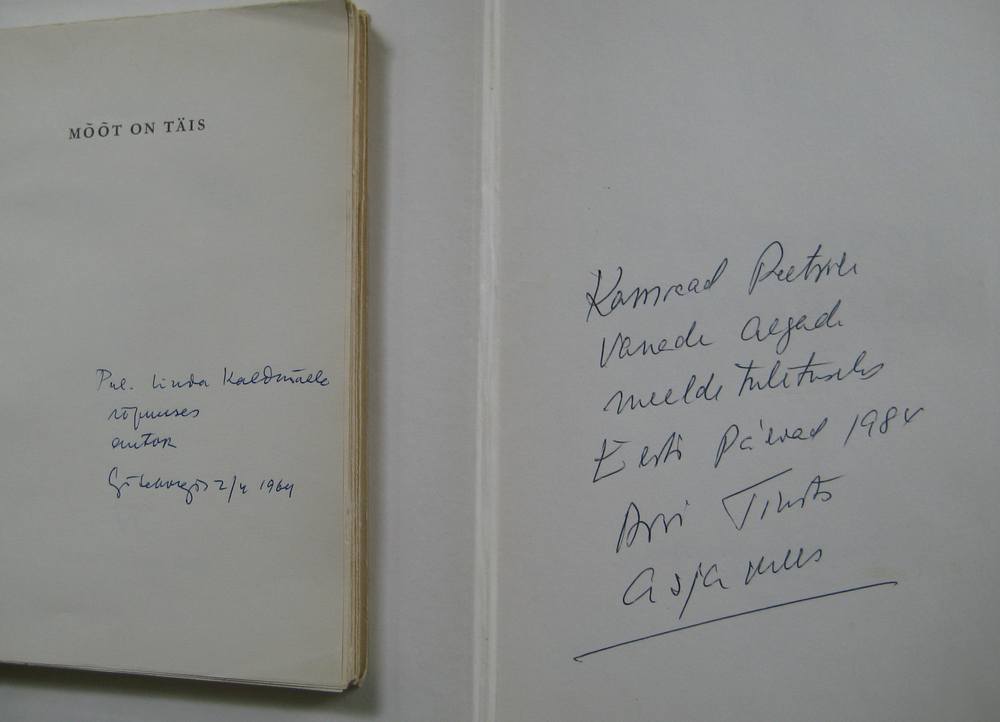 MÕÕT ON TÄIS
Prl. Linda Kaldmäele
rõõmuses
autor
Göteborgis 2/4 1964
Kamraad Peetrile
vanade aegade
meeldetuletuseks
Eesti Päevad 1984
Arvi Tinits
asjamees